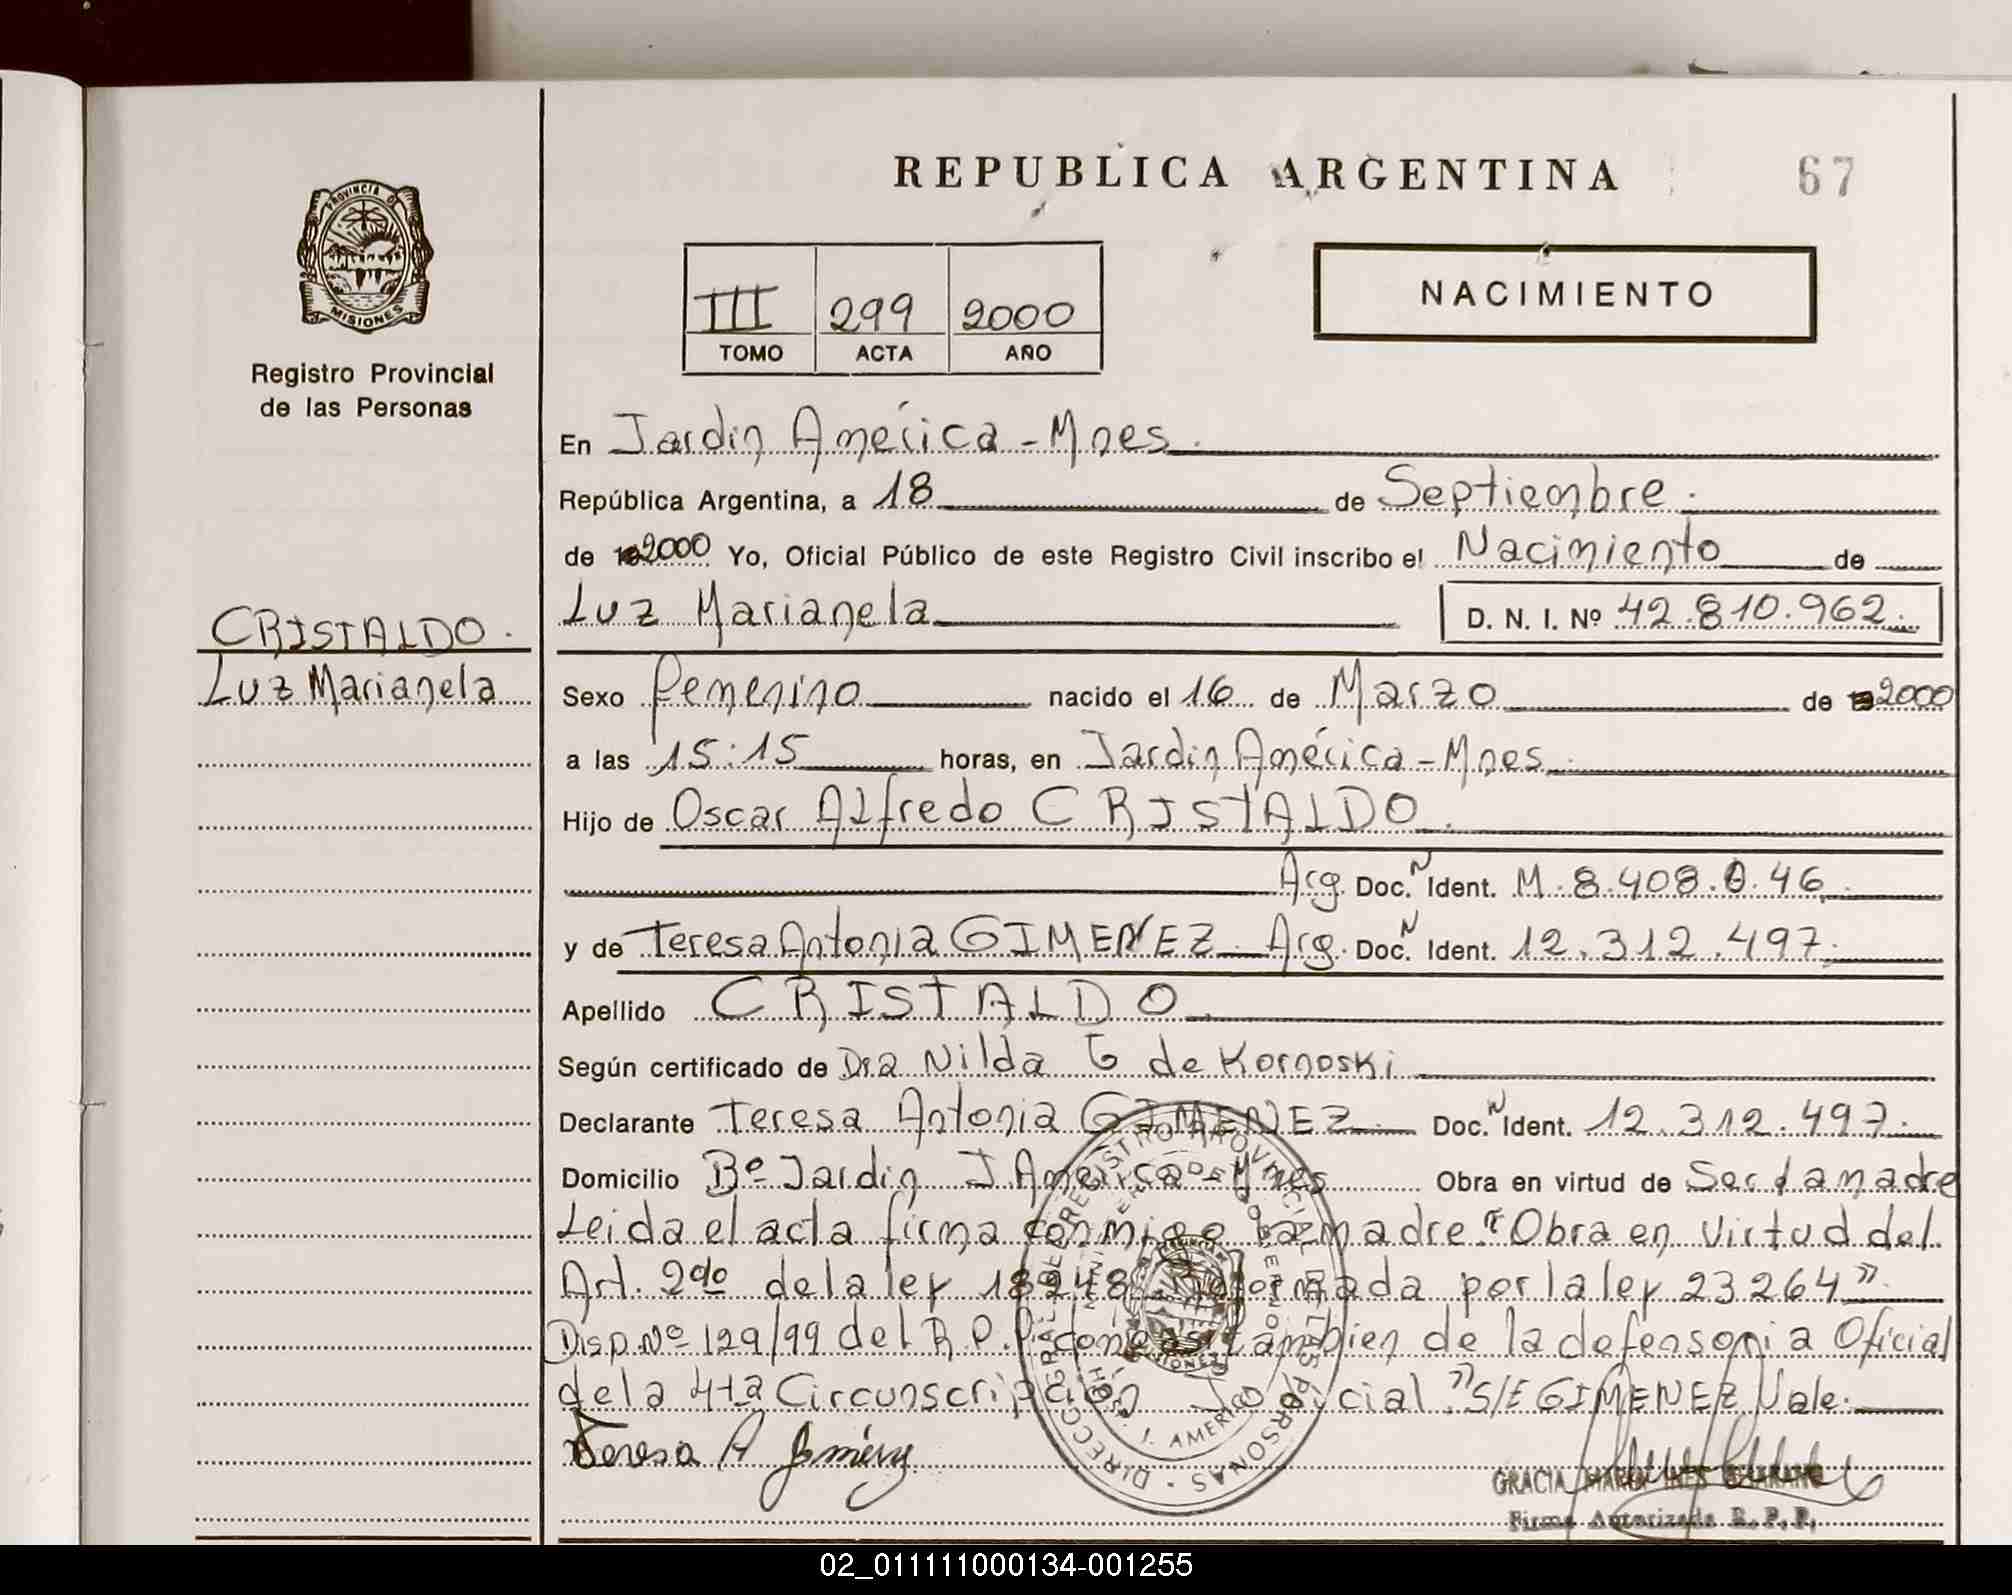 REPUBLICA ARGENTINA 67
PROVINCIA DE
MISIONES
Registro Provincial
de las Personas
III 299 2000
TOMO ACTA AÑO
NACIMIENTO
En Jardin América - Mnes.
República Argentina, a 18 de Septiembre.
de 2000 Yo, Oficial Público de este Registro Civil inscribo el Nacimiento de
Luz Marianela D. N. I. Nº 42.810.962.
CRISTALDO.
Luz Marianela
Sexo femenino nacido el 16 de Marzo de 2000
a las 15:15 horas, en Jardin América - Mnes.
Hijo de Oscar Alfredo CRISTALDO.
Arg. Doc. N Ident. M. 8.408.046.
y de Teresa Antonia GIMENEZ. Arg. Doc. N Ident. 12.312.497.
Apellido CRISTALDO.
Según certificado de Dra Nilda G de Kornoski
Declarante Teresa Antonia GIMENEZ. Doc. N Ident. 12.312.497.
Domicilio Bº Jardin J. América - Mnes Obra en virtud de Ser la madre
Leida el acta firma conmigo la madre. "Obra en virtud del
Art. 2do de la ley 18248 Reformada por la ley 23264".
Disp. Nº 129/99 del R.P.P. como así tambien de la defensoria Oficial
de la 4ta Circunscripción Judicial." S/E GIMENEZ Vale.
Teresa A Giménez
J. AMERICA
GRACIA MARIA INES
Firma Autorizada R. P. P.
02_011111000134-001255